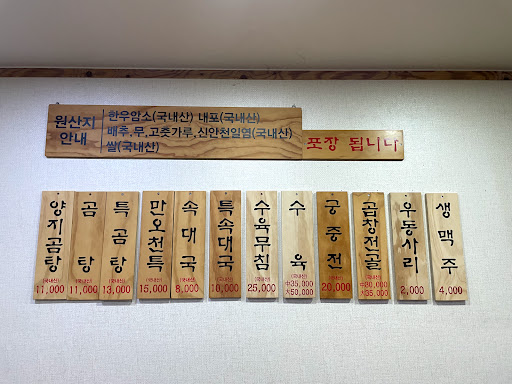 원산지
안내
한우암소(국내산) 내포(국내산)
배추,무,고춧가루,신안천일염(국내산)
쌀(국내산)
포장 됩니다
양지곰탕
(국내산)
11,000
곰탕
(국내산)
11,000
특곰탕
(국내산)
13,000
만오천특
(국내산)
15,000
속대국
(국내산)
8,000
특속대국
(국내산)
10,000
수육무침
(국내산)
25,000
수육
(국내산)
中35,000
大50,000
궁중전
(국내산)
20,000
곱창전골
(국내산)
中30,000
大35,000
우동사리
2,000
생맥주
4,000